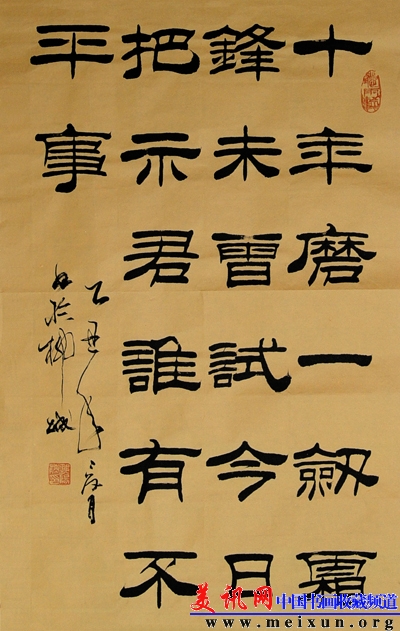 十年磨一劍霜
鋒未曾試今日
把示君誰有不
平事
乙丑年月
城
美讯网 中国书画收藏频道
www.meixun.org